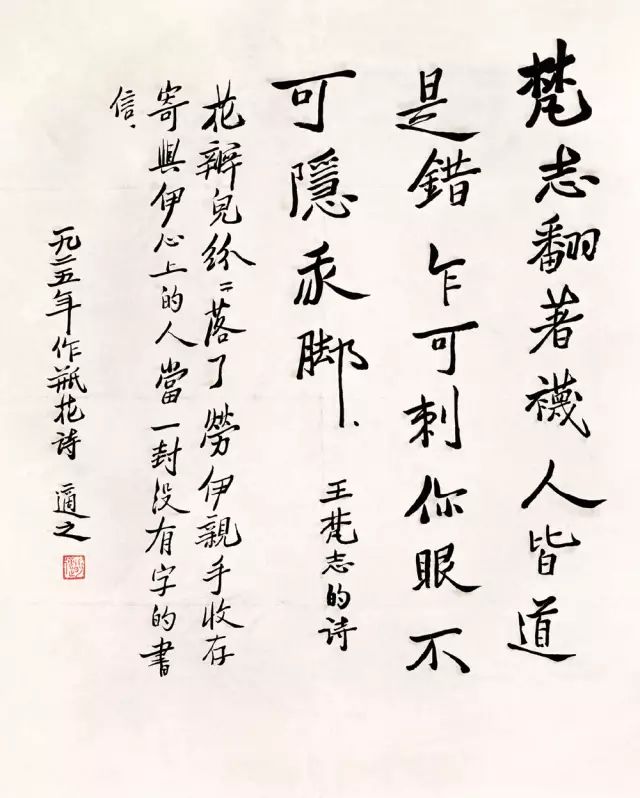 梵志翻著襪人皆道
是錯乍可刺你眼不
可隱我脚、
王梵志的诗
花瓣兒紛〻落了勞伊親手收存
寄與伊心上的人當一封没有字的書
信、
一九二五年作瓶花诗 適之